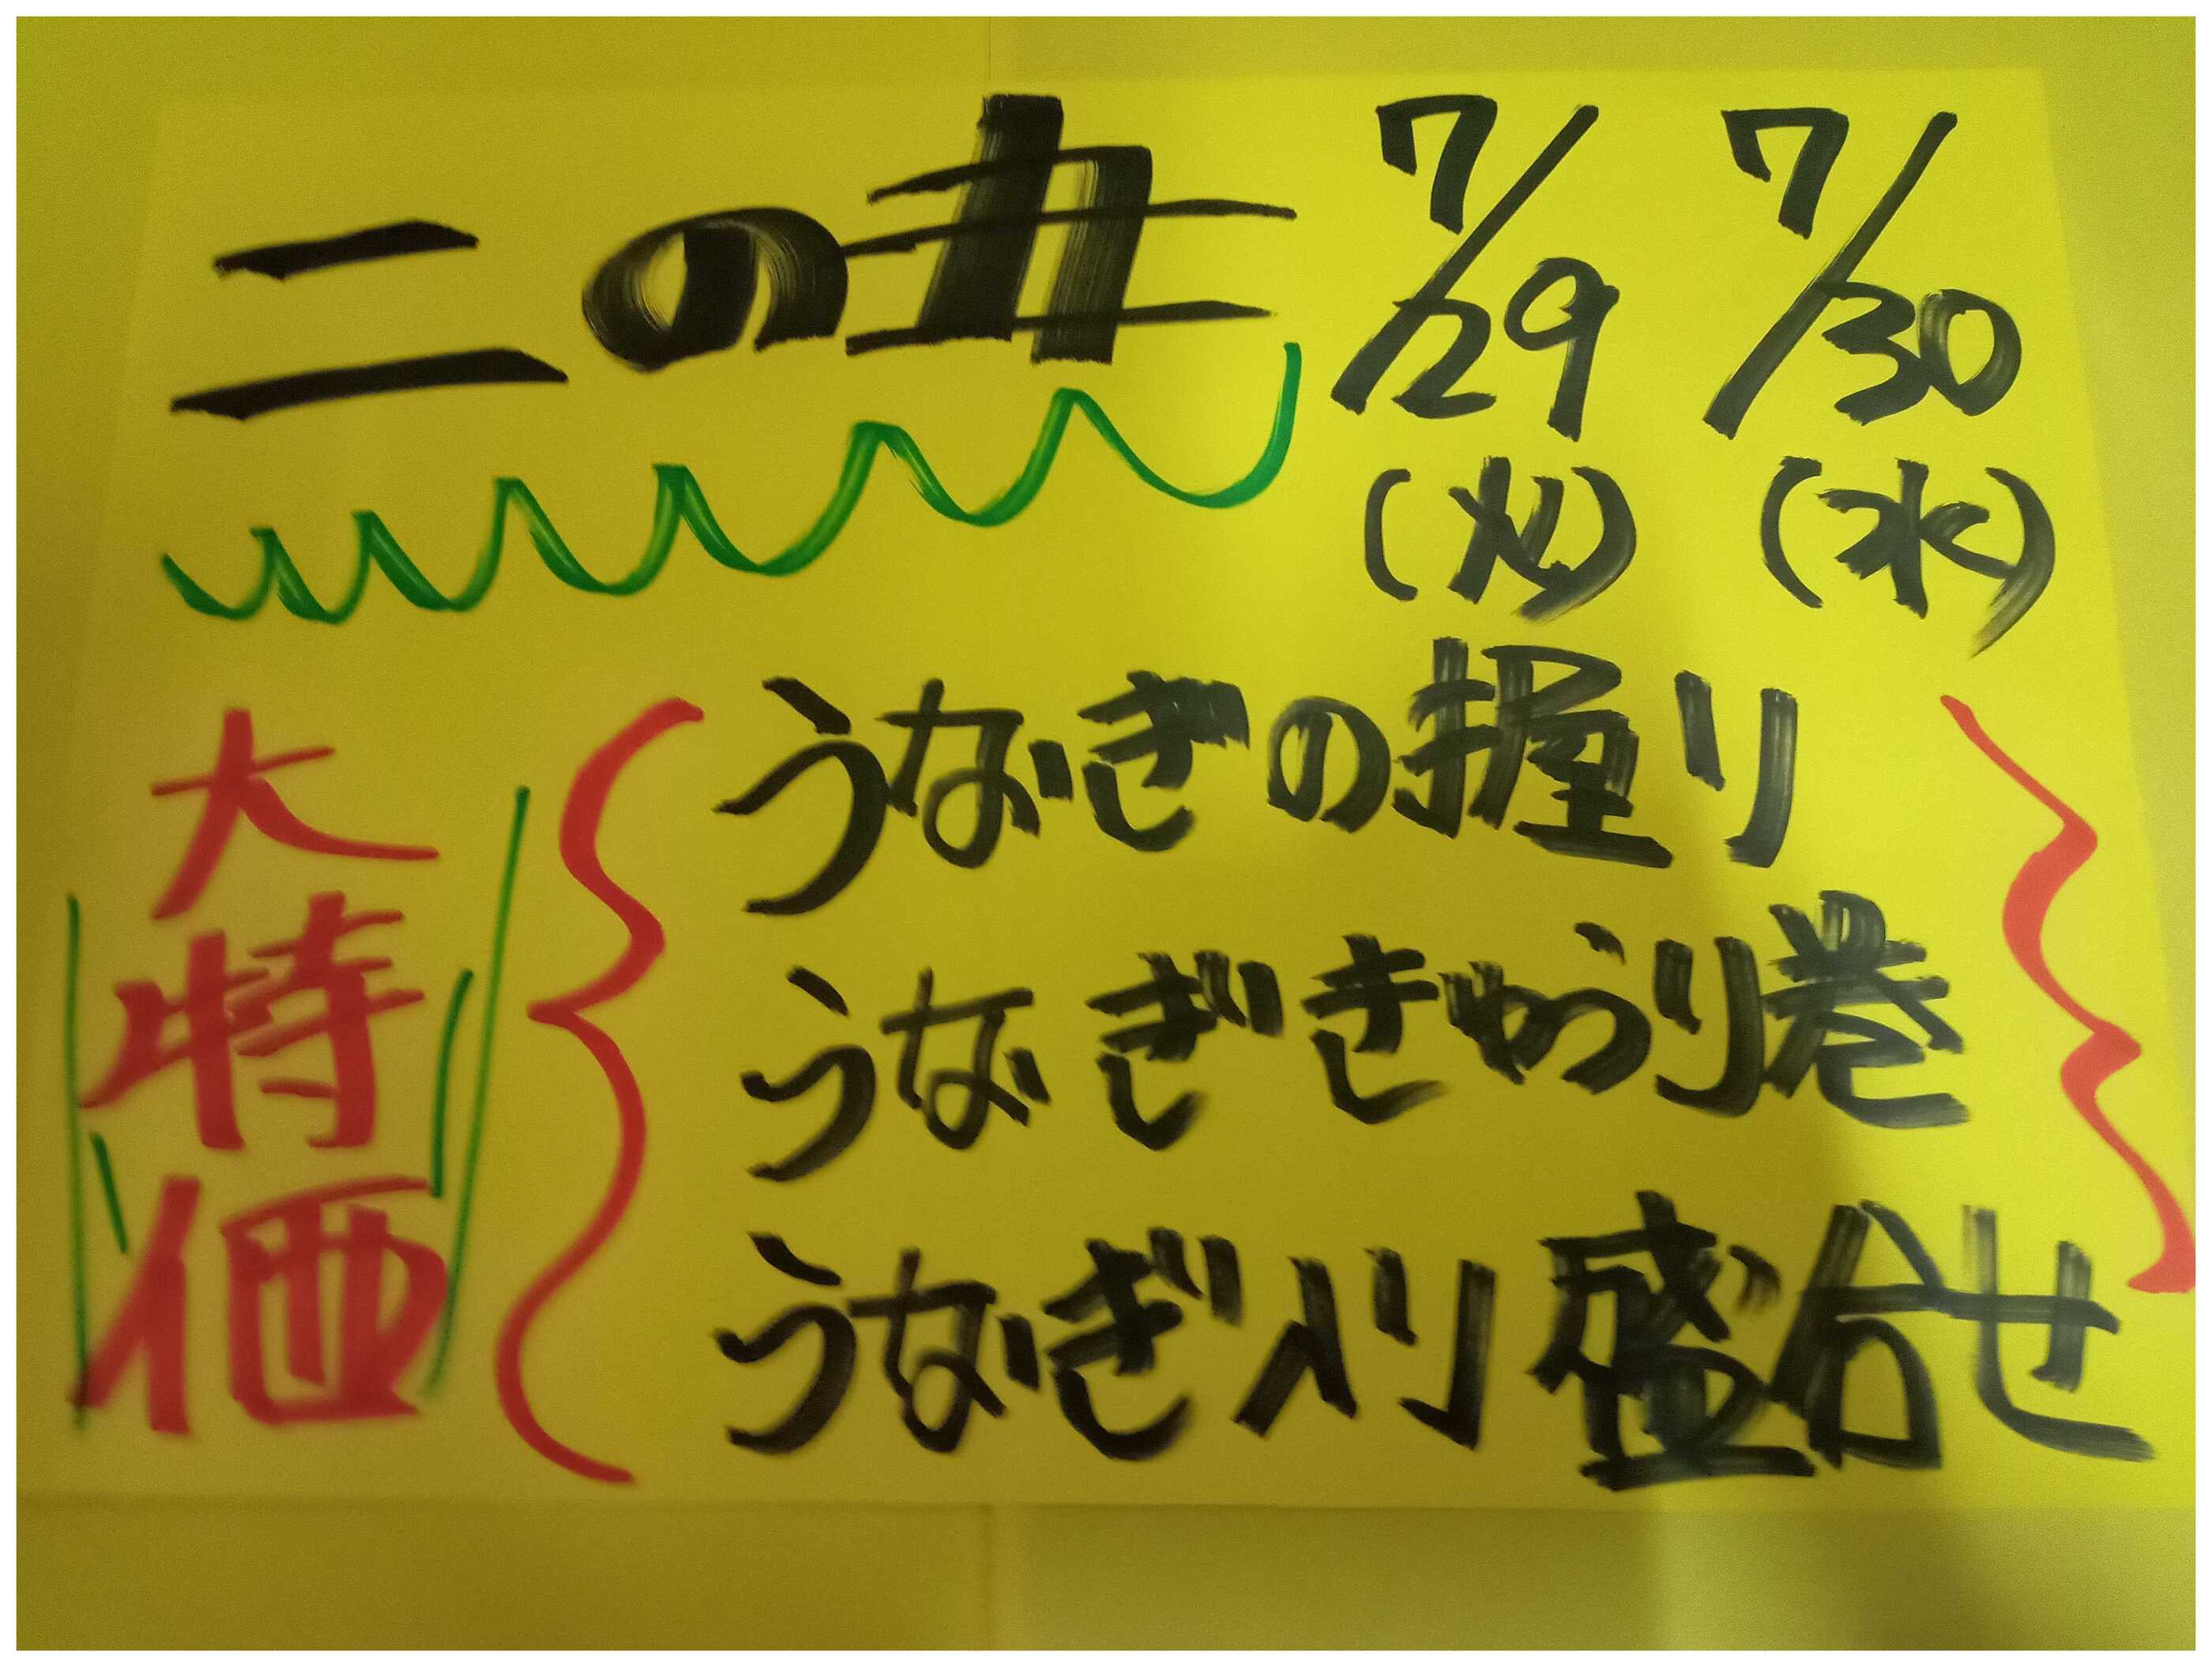 二の丑
7/29 7/30
(火) (水)
大特価
うなぎの握り
うなぎきゅうり巻
うなぎ入り盛合せ